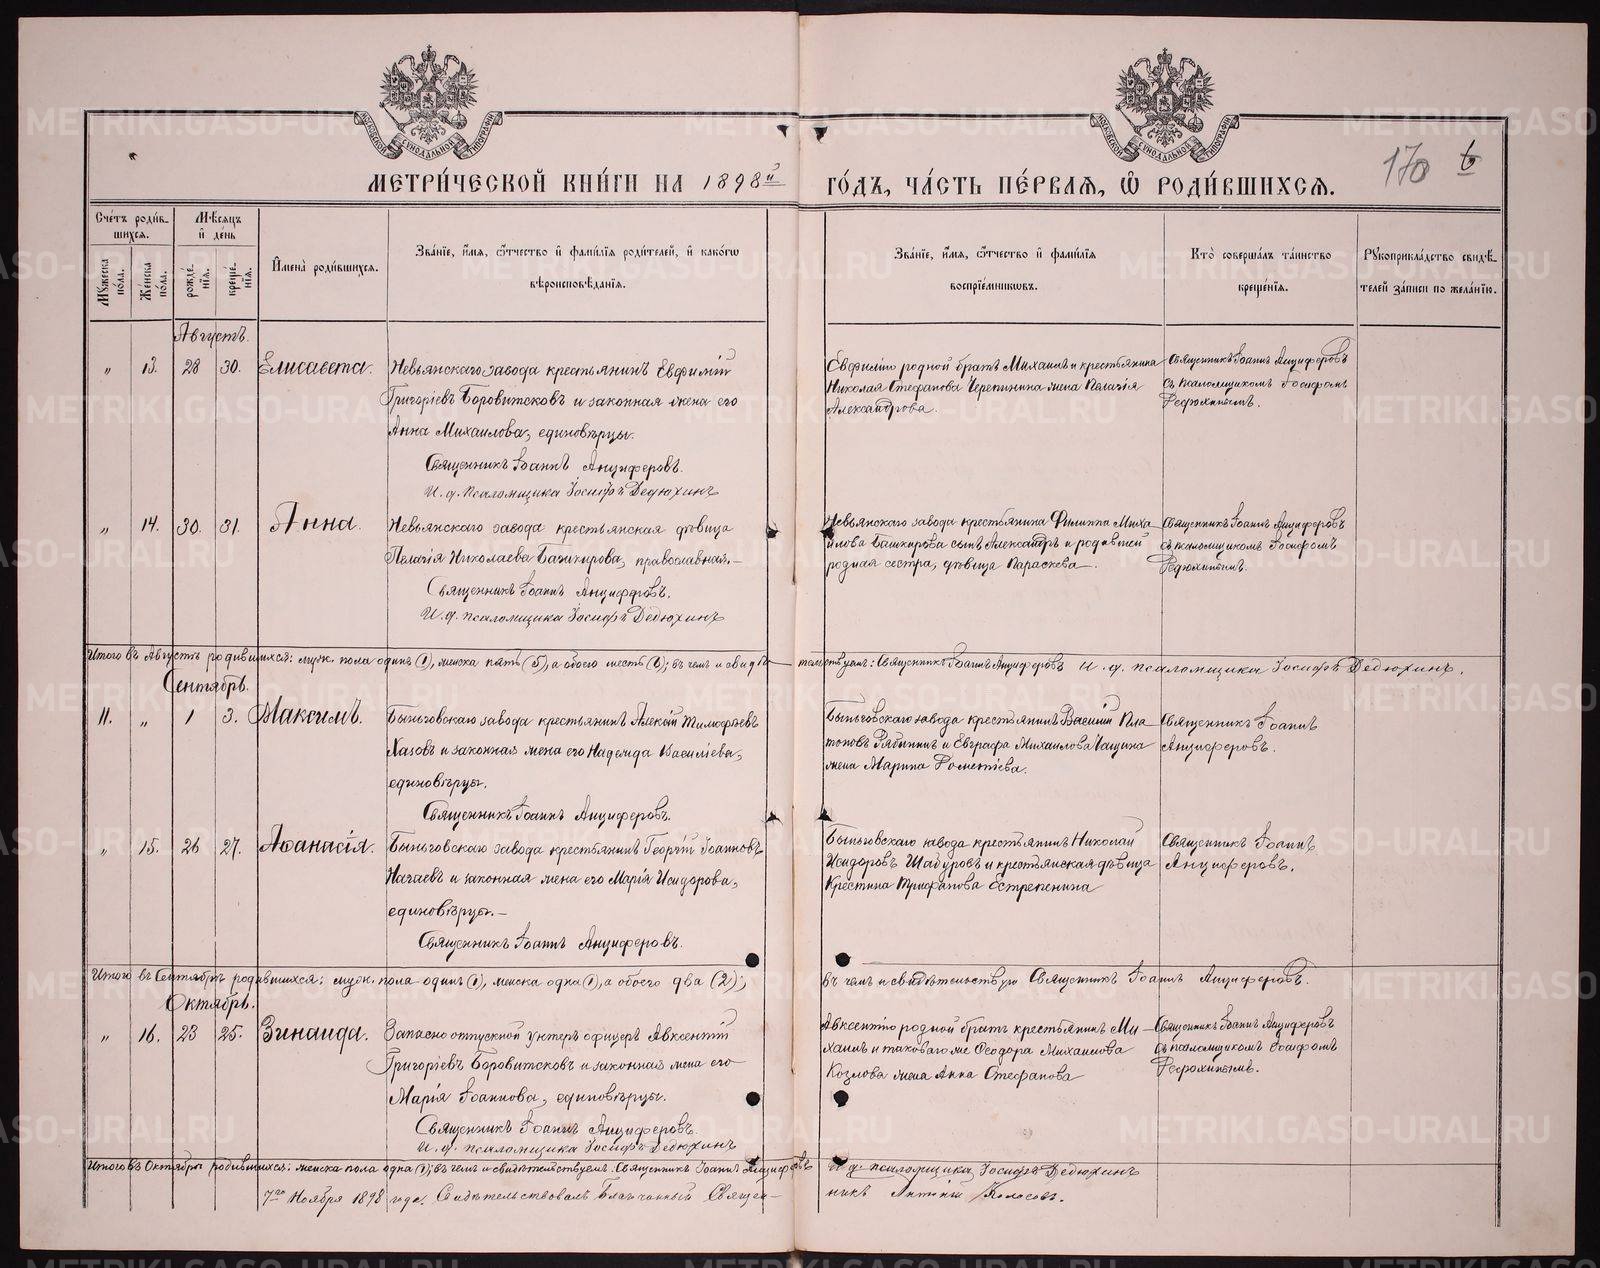 МЕТРИ́ЧЕСКОЙ КНИ́ГИ НА 1898й ГО́ДЪ, ЧА́СТЬ ПЕ́РВАЯ, Ѽ РОДИ́ВШИХСЯ.
170
Сче́тъ роди́в-
шихся.
Мѣ́сяцъ
и де́нь
Му́жеска по́ла.
Же́нска по́ла.
рожде́-
нія.
креще́-
нія.
И́мена роди́вшихся.
Зва́ніе, и́мя, ѻ́тчество и фами́лія роди́телей, и како́гѡ
вѣроисповѣ́данія.
Зва́ніе, и́мя, ѻ́тчество и фами́лія
воспріе́мниковъ.
Кто̀ соверша́лъ та́инство
креще́нія.
Рꙋкоприкла́дство свидѣ́-
телей за́писи по жела́нію.
Августъ.
„ 13. 28 30. Елисавета.
Невьянскаго завода крестьянинъ Евфимій
Григоріевъ Боровитсковъ и законная жена его
Анна Михаилова, единовѣрцы.
Священникъ Іоаннъ Анциферовъ.
И. д. псаломщика Іосифъ Дедюхинъ
Евфимію родной братъ Михаилъ и крестьянина
Николая Стефанова Черепанина жена Пелагія
Александрова.
Священникъ Іоаннъ Анциферовъ
съ псаломщикомъ Іосифомъ
Дедюхинымъ.
„ 14. 30. 31. Анна.
Невьянскаго завода крестьянская дѣвица
Пелагія Николаева Башкирова, православная.—
Священникъ Іоаннъ Анциферовъ.
И. д. псаломщика Іосифъ Дедюхинъ
Невьянскаго завода крестьянина Филиппа Миха-
илова Башкирова сынъ Александръ и родившей
родная сестра, дѣвица Параскева.
Священникъ Іоаннъ Анциферовъ
съ псаломщикомъ Іосифомъ
Дедюхинымъ.
Итого въ Августѣ родившихся: муж. пола одинъ (1), женска пять (5), а обоего шесть (6); въ чемъ и свидѣ-тельствуемъ: Священникъ Іоаннъ Анциферовъ И. д. псаломщика Іосифъ Дедюхинъ.
Сентябрь.
11. „ 1 3. Максимъ.
Быньговскаго завода крестьянинъ Алексій Тимофеевъ
Хазовъ и законная жена его Надежда Василіева,
единовѣрцы.
Священникъ Іоаннъ Анциферовъ.
Быньговскаго завода крестьянинъ Василій Пла-
тоновъ Рябининъ и Евграфа Михаилова
жена Марина
Священникъ Іоаннъ
Анциферовъ.
„ 15. 26 27. Аѳанасія.
Быньговскаго завода крестьянинъ Георгій Іоанновъ
Нагаевъ и законная жена его Марія Исидорова,
единовѣрцы.—
Священникъ Іоаннъ Анциферовъ.
Быньговскаго завода крестьянинъ Николай
Исидоровъ Шадуровъ и крестьянская дѣвица
Крестина Трифанова
Священникъ Іоаннъ
Анциферовъ.
Итого въ Сентябрѣ родившихся: муж. пола одинъ (1), женска одна (1), а обоего два (2); въ чемъ и свидѣтельствую Священникъ Іоаннъ Анциферовъ.
Октябрь.
„ 16. 23 25. Зинаида.
Запасно отпускной унтеръ офицеръ Авксентій
Григоріевъ Боровитсковъ и законная жена его
Марія Іоаннова, единовѣрцы.
Священникъ Іоаннъ Анциферовъ.
И. д. псаломщика Іосифъ Дедюхинъ
Авксентію родной братъ крестьянинъ Ми-
хаилъ и таковаго же Ѳеодора Михаилова
Козлова жена Анна Стефанова
Священникъ Іоаннъ Анциферовъ
съ псаломщикомъ Іосифомъ
Дедюхинымъ.
Итого въ Октябрѣ родившихся: женска пола одна (1); въ чемъ и свидѣтельствуемъ: Священникъ Іоаннъ Анциферовъ И. д. псаломщика Іосифъ Дедюхинъ
7го Ноября 1898 года. Свидѣтельствовалъ Благочинный Священ-никъ Антоній Колосовъ.
METRIKI.GASO-URAL.RU